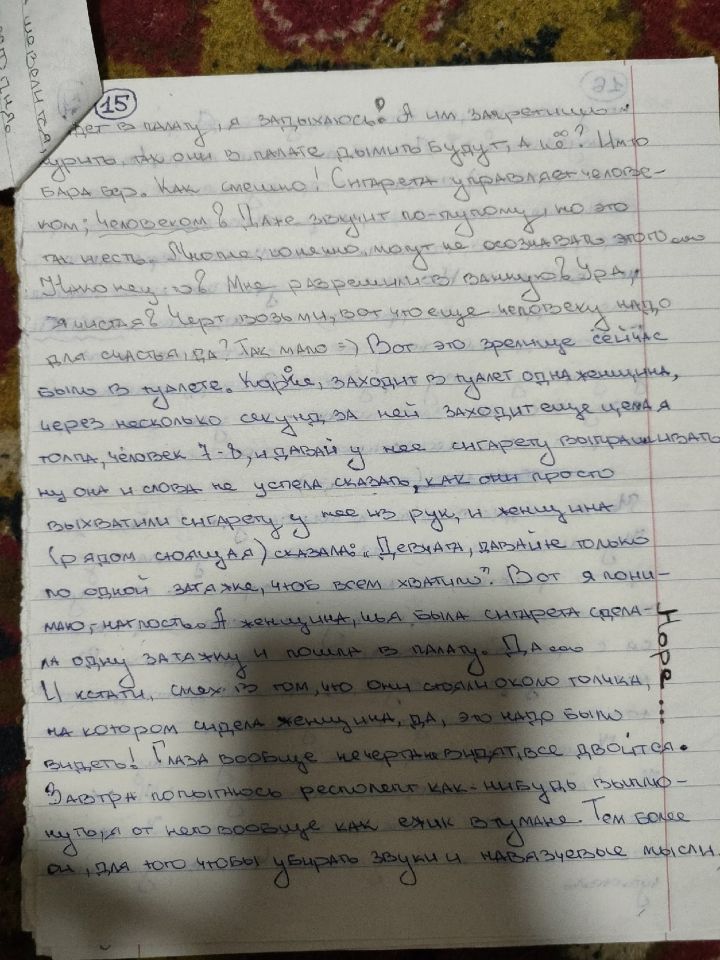 15
21
дет в палату, я задыхаюсь! А им запретишь
курить, так они в палате дымить будут, а
бара бер. Как смешно! Сигарета управляет челове-
ком; человеком? Даже звучит по-тупому, но это
так и есть. Многие, конечно, могут не осознавать этого...
Наконец-то! Мне разрешили в ванную! Ура,
я чистая! Черт возьми, вот что еще человеку надо
для счастья, да? Так мало =) Вот это зрелище сейчас
было в туалете. Короче, заходит в туалет одна женщина,
через несколько секунд за ней заходит еще целая
толпа, человек 7-8, и давай у нее сигарету выпрашивать
ну она и слова не успела сказать, как они просто
выхватили сигарету у нее из рук, и женщина
(рядом стоящая) сказала: „Девчата, давайте только
по одной затяжке, чтоб всем хватило". Вот я пони-
маю, наглость. А женщина, чья была сигарета сдела-
ла одну затяжку и пошла в палату. Да...
И кстати, смех в том, что они стояли около толчка,
на котором сидела женщина, да, это надо было
видеть! Глаза вообще нечерта не видят, все двоится.
Завтра попытаюсь респолепт как-нибудь выплю-
нуть, я от него вообще как ежик в тумане. Тем более
он, для того чтобы убирать звуки и навязчевые мысли.
Норе...
шевелится,